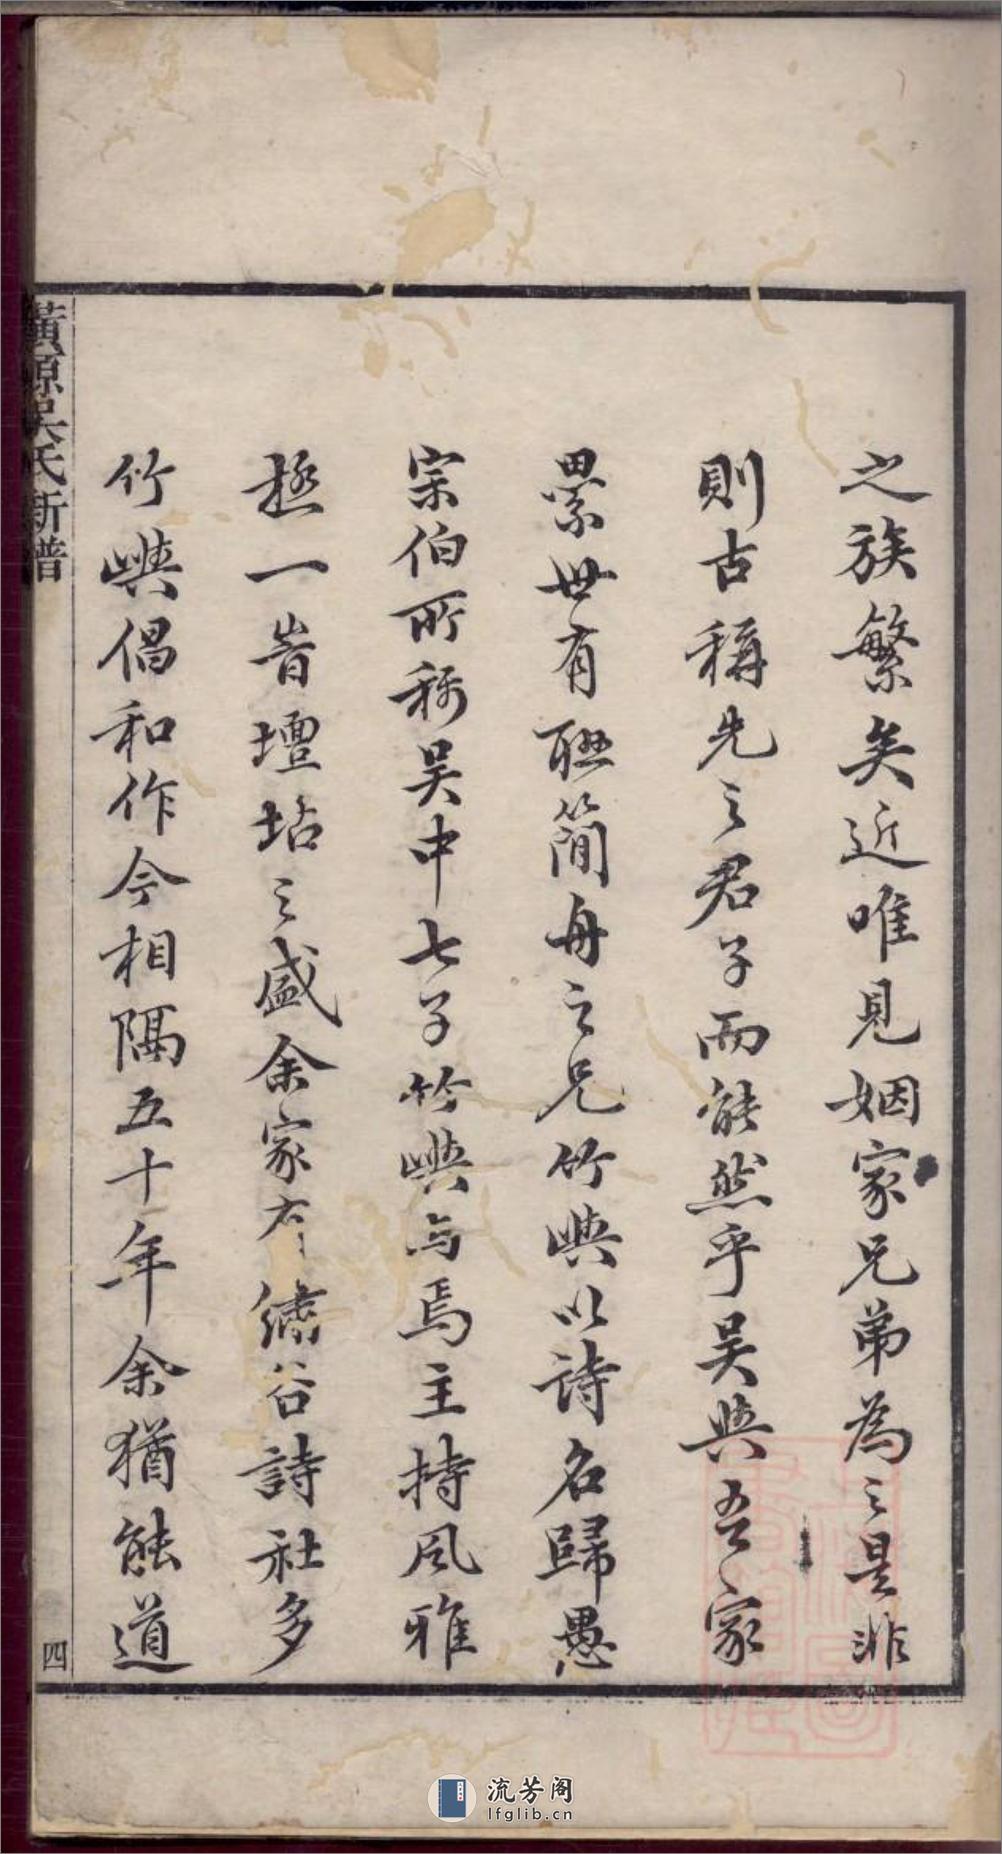 之族繁矣近唯見姻家兄弟為之是非
則古稱先之君子而能然乎吳與吾家
累世有聯簡舟之兄竹嶼以詩名歸愚
宗伯所称吴中七子竹嶼与焉主持風雅
極一旹壇坫之盛余家有繡谷詩社多
竹嶼倡和作今相隔五十年余猶能道
黃源吳氏新譜
四
流芳阁
lfglib.cn